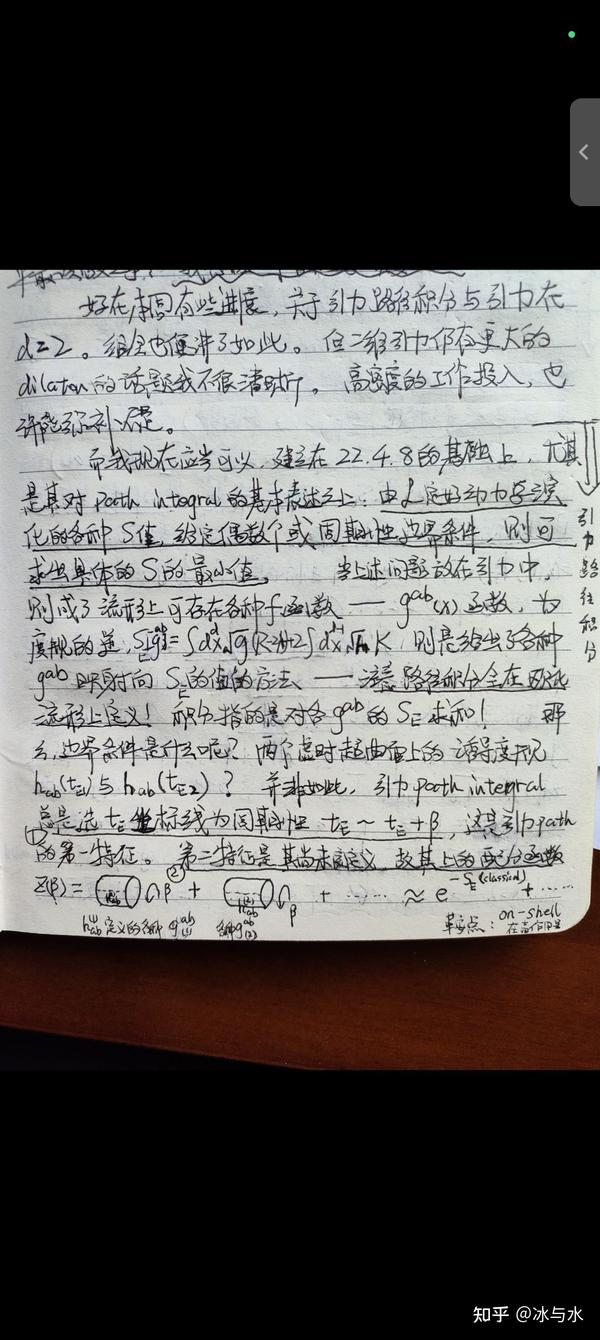 好在本周有些进度，关于引力路径积分与引力在
d=2。组会也便讲了如此。但二维引力仍有更大的
dilaton的话题我不很清晰。高密度的工作投入，也
许能弥补不足。
而我现在应当可以，建立在22.4.8的基础上，尤其
是其对path integral的基本表述之上：由L定好动力学演
化的各种S值，给定偶数个或周期性边界条件，则可
求出具体的S的最小值。 当上述问题放在引力中，
则成了流形上可存在各种f函数——gab(x)函数，为
度规的差，
则是给出了各种
gab映射向SE的值的方法——注意路径积分全在欧氏
流形上定义！积分指的是对各gab的SE求和！ 那
么，边界条件是什么呢？两个虚时超曲面上的诱导度规
hab(tE1)与hab(tE2)？ 并非如此，引力path integral
总是选tE坐标线为周期性 tE～tE+β，这是引力path
的第一特征。第二特征是其尚未定义，故其上的配分函数
Z(β)= β + β + …… ≈ e^-SE(classical) + ……
定义的各种 各种 鞍点：on-shell
引力路径积分
知乎 @冰与水